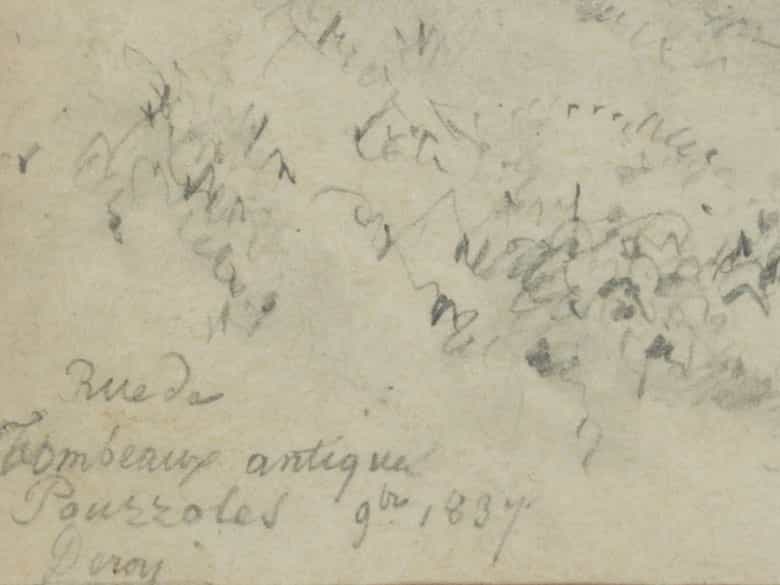 Rue de
Tombeaux antique
Pouzzoles 9bre 1837
Deroy